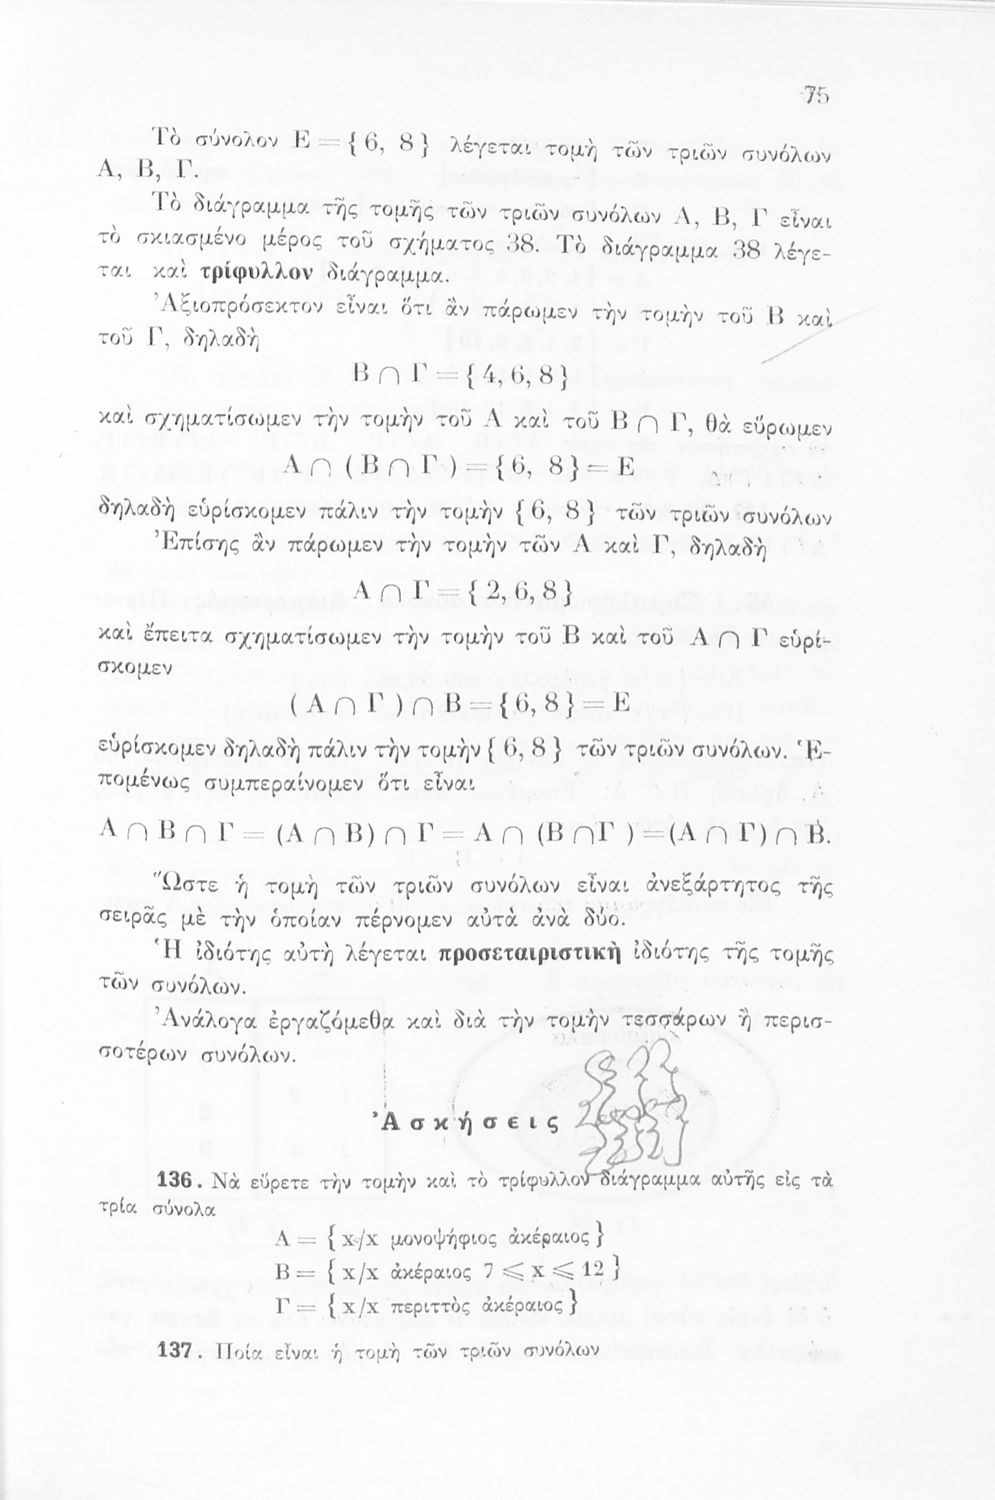 75
Τὸ σύνολον Ε = { 6, 8 } λέγεται τομὴ τῶν τριῶν συνόλων
Α, Β, Γ.
Τὸ διάγραμμα τῆς τομῆς τῶν τριῶν συνόλων Α, Β, Γ εἶναι
τὸ σκιασμένο μέρος τοῦ σχήματος 38. Τὸ διάγραμμα 38 λέγε-
ται καὶ τρίφυλλον διάγραμμα.
Ἀξιοπρόσεκτον εἶναι ὅτι ἂν πάρωμεν τὴν τομὴν τοῦ Β καὶ
τοῦ Γ, δηλαδὴ
Β ∩ Γ = { 4, 6, 8 }
καὶ σχηματίσωμεν τὴν τομὴν τοῦ Α καὶ τοῦ Β ∩ Γ, θὰ εὕρωμεν
Α ∩ ( Β ∩ Γ ) = { 6, 8 } = Ε
δηλαδὴ εὑρίσκομεν πάλιν τὴν τομὴν { 6, 8 } τῶν τριῶν συνόλων
Ἐπίσης ἂν πάρωμεν τὴν τομὴν τῶν Α καὶ Γ, δηλαδὴ
Α ∩ Γ = { 2, 6, 8 }
καὶ ἔπειτα σχηματίσωμεν τὴν τομὴν τοῦ Β καὶ τοῦ Α ∩ Γ εὑρί-
σκομεν
( Α ∩ Γ ) ∩ Β = { 6, 8 } = Ε
εὑρίσκομεν δηλαδὴ πάλιν τὴν τομὴν { 6, 8 } τῶν τριῶν συνόλων. Ἑ-
πομένως συμπεραίνομεν ὅτι εἶναι
Α ∩ Β ∩ Γ = (Α ∩ Β) ∩ Γ = Α ∩ (Β ∩ Γ ) = (Α ∩ Γ) ∩ Β.
Ὥστε ἡ τομὴ τῶν τριῶν συνόλων εἶναι ἀνεξάρτητος τῆς
σειρᾶς μὲ τὴν ὁποίαν πέρνομεν αὐτὰ ἀνὰ δύο.
Ἡ ἰδιότης αὐτὴ λέγεται προσεταιριστικὴ ἰδιότης τῆς τομῆς
τῶν συνόλων.
Ἀνάλογα ἐργαζόμεθα καὶ διὰ τὴν τομὴν τεσσάρων ἢ περισ-
σοτέρων συνόλων.
Ἀσκήσεις
136. Νὰ εὕρετε τὴν τομὴν καὶ τὸ τρίφυλλον διάγραμμα αὐτῆς εἰς τὰ
τρία σύνολα
Α = { x/x μονοψήφιος ἀκέραιος }
Β = { x/x ἀκέραιος 7 ⩽ x ⩽ 12 }
Γ = { x/x περιττὸς ἀκέραιος }
137. Ποία εἶναι ἡ τομὴ τῶν τριῶν συνόλων